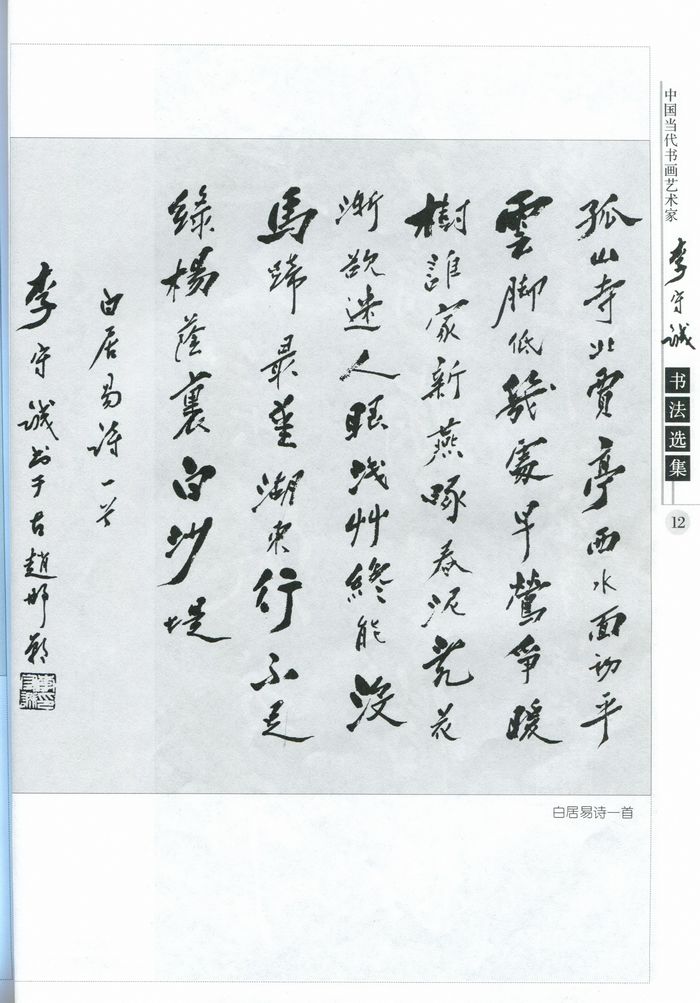 中国当代书画艺术家
李守诚
书法选集
12
孤山寺北賈亭西水面初平
雲脚低幾處早鶯爭暖
樹誰家新燕啄春泥亂花
漸欲迷人眼淺艸纔能没
馬蹄最愛湖東行不足
綠楊蔭裏白沙堤
白居易詩一首
李守誠書于古趙邯鄲
白居易诗一首